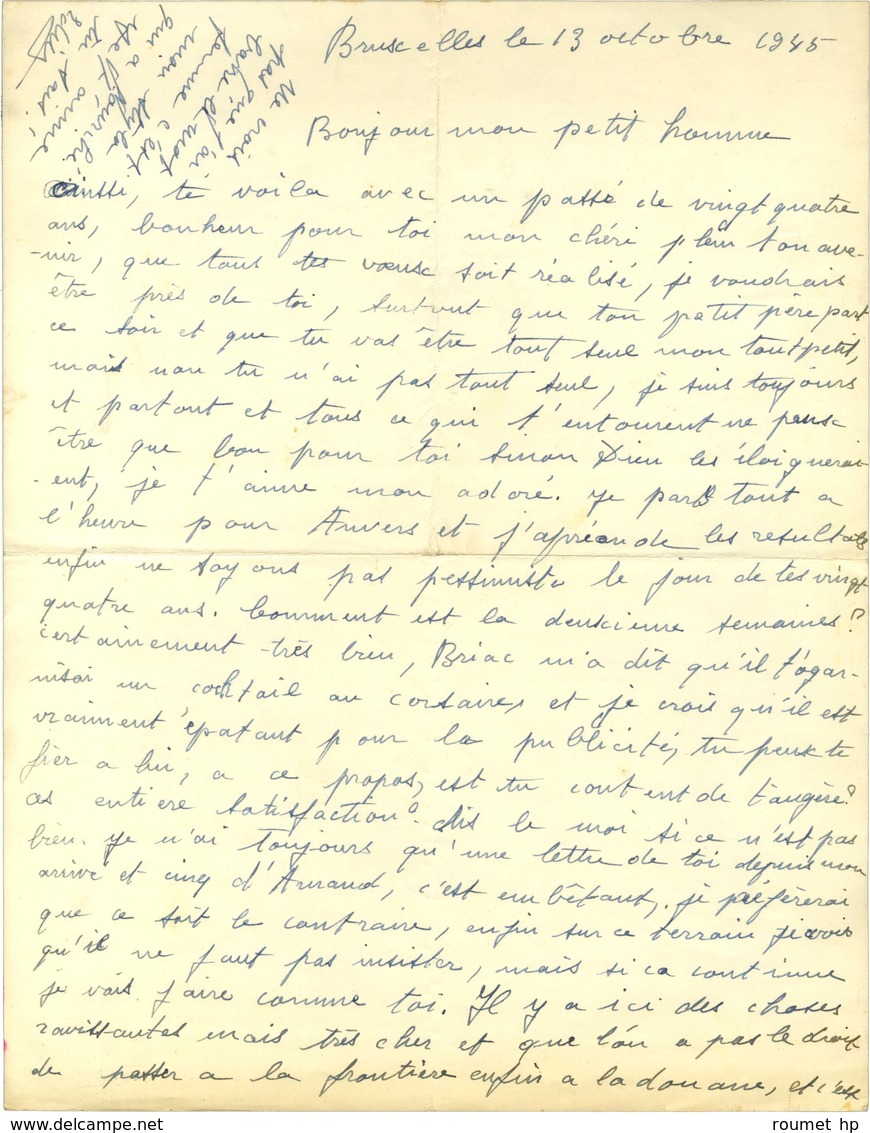 Bruxelles le 13 octobre 1945
Bonjour mon petit homme
ainsi, te voila avec un passé de vingt quatre
ans, bonheur pour toi mon chéri plein ton ave-
-nir, que tous tes voeux soit réalisé, je voudrais
être près de toi, surtout que ton petit père part
ce soir et que tu vas être tout seul mon tout petit,
mais non tu n'ai pas tout seul, je suis toujours
et partout et tous ce qui t'entourent ne peux
être que bon pour toi sinon Dieu les éloignerai
-ent, je t'aime mon adoré. je pars tout a
l'heure pour Anvers et j'apréande les resultats
enfin ne soyons pas pessimiste le jour de tes vingt
quatre ans. Comment est la deuxieme semaines?
certainement très bien, Briac m'a dit qu'il t'ogar-
nisai un cocktail au corsaire, et je crois qu'il est
vraiment épatant pour la publicité, tu peux te
fier a lui, a ce propos, est tu content de t'augère?
as entière satisfaction? dis le moi si ce n'est pas
bien. je n'ai toujours qu'une lettre de toi depuis mon
arrivé et cinq d'Arnaud, c'est embêtant, je préfèrerai
que ce soit le contraire, enfin sur ce terrain je vois
qu'il ne faut pas insister, mais si ca continue
je vais faire comme toi. Il y a ici des choses
ravissantes mais très cher et que l'on a pas le droit
de passer a la frontière enfin a la douane, et c'est
Ne crois
pas que j'ai
barré et
femme c'est
mon stylo
qui a
tu sais,
aimé
roumet hp